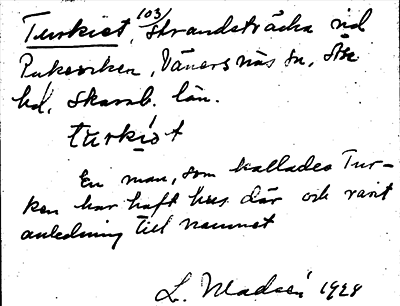 Turkist, 103/ strandsträcka vid
Pukeviken, Vänersnäs sn, Åse
hd, Skarab. län.
turkist
En man, som kallades Tur-
ken har haft hus där och varit
anledning till namnet
L. Madsén 1928